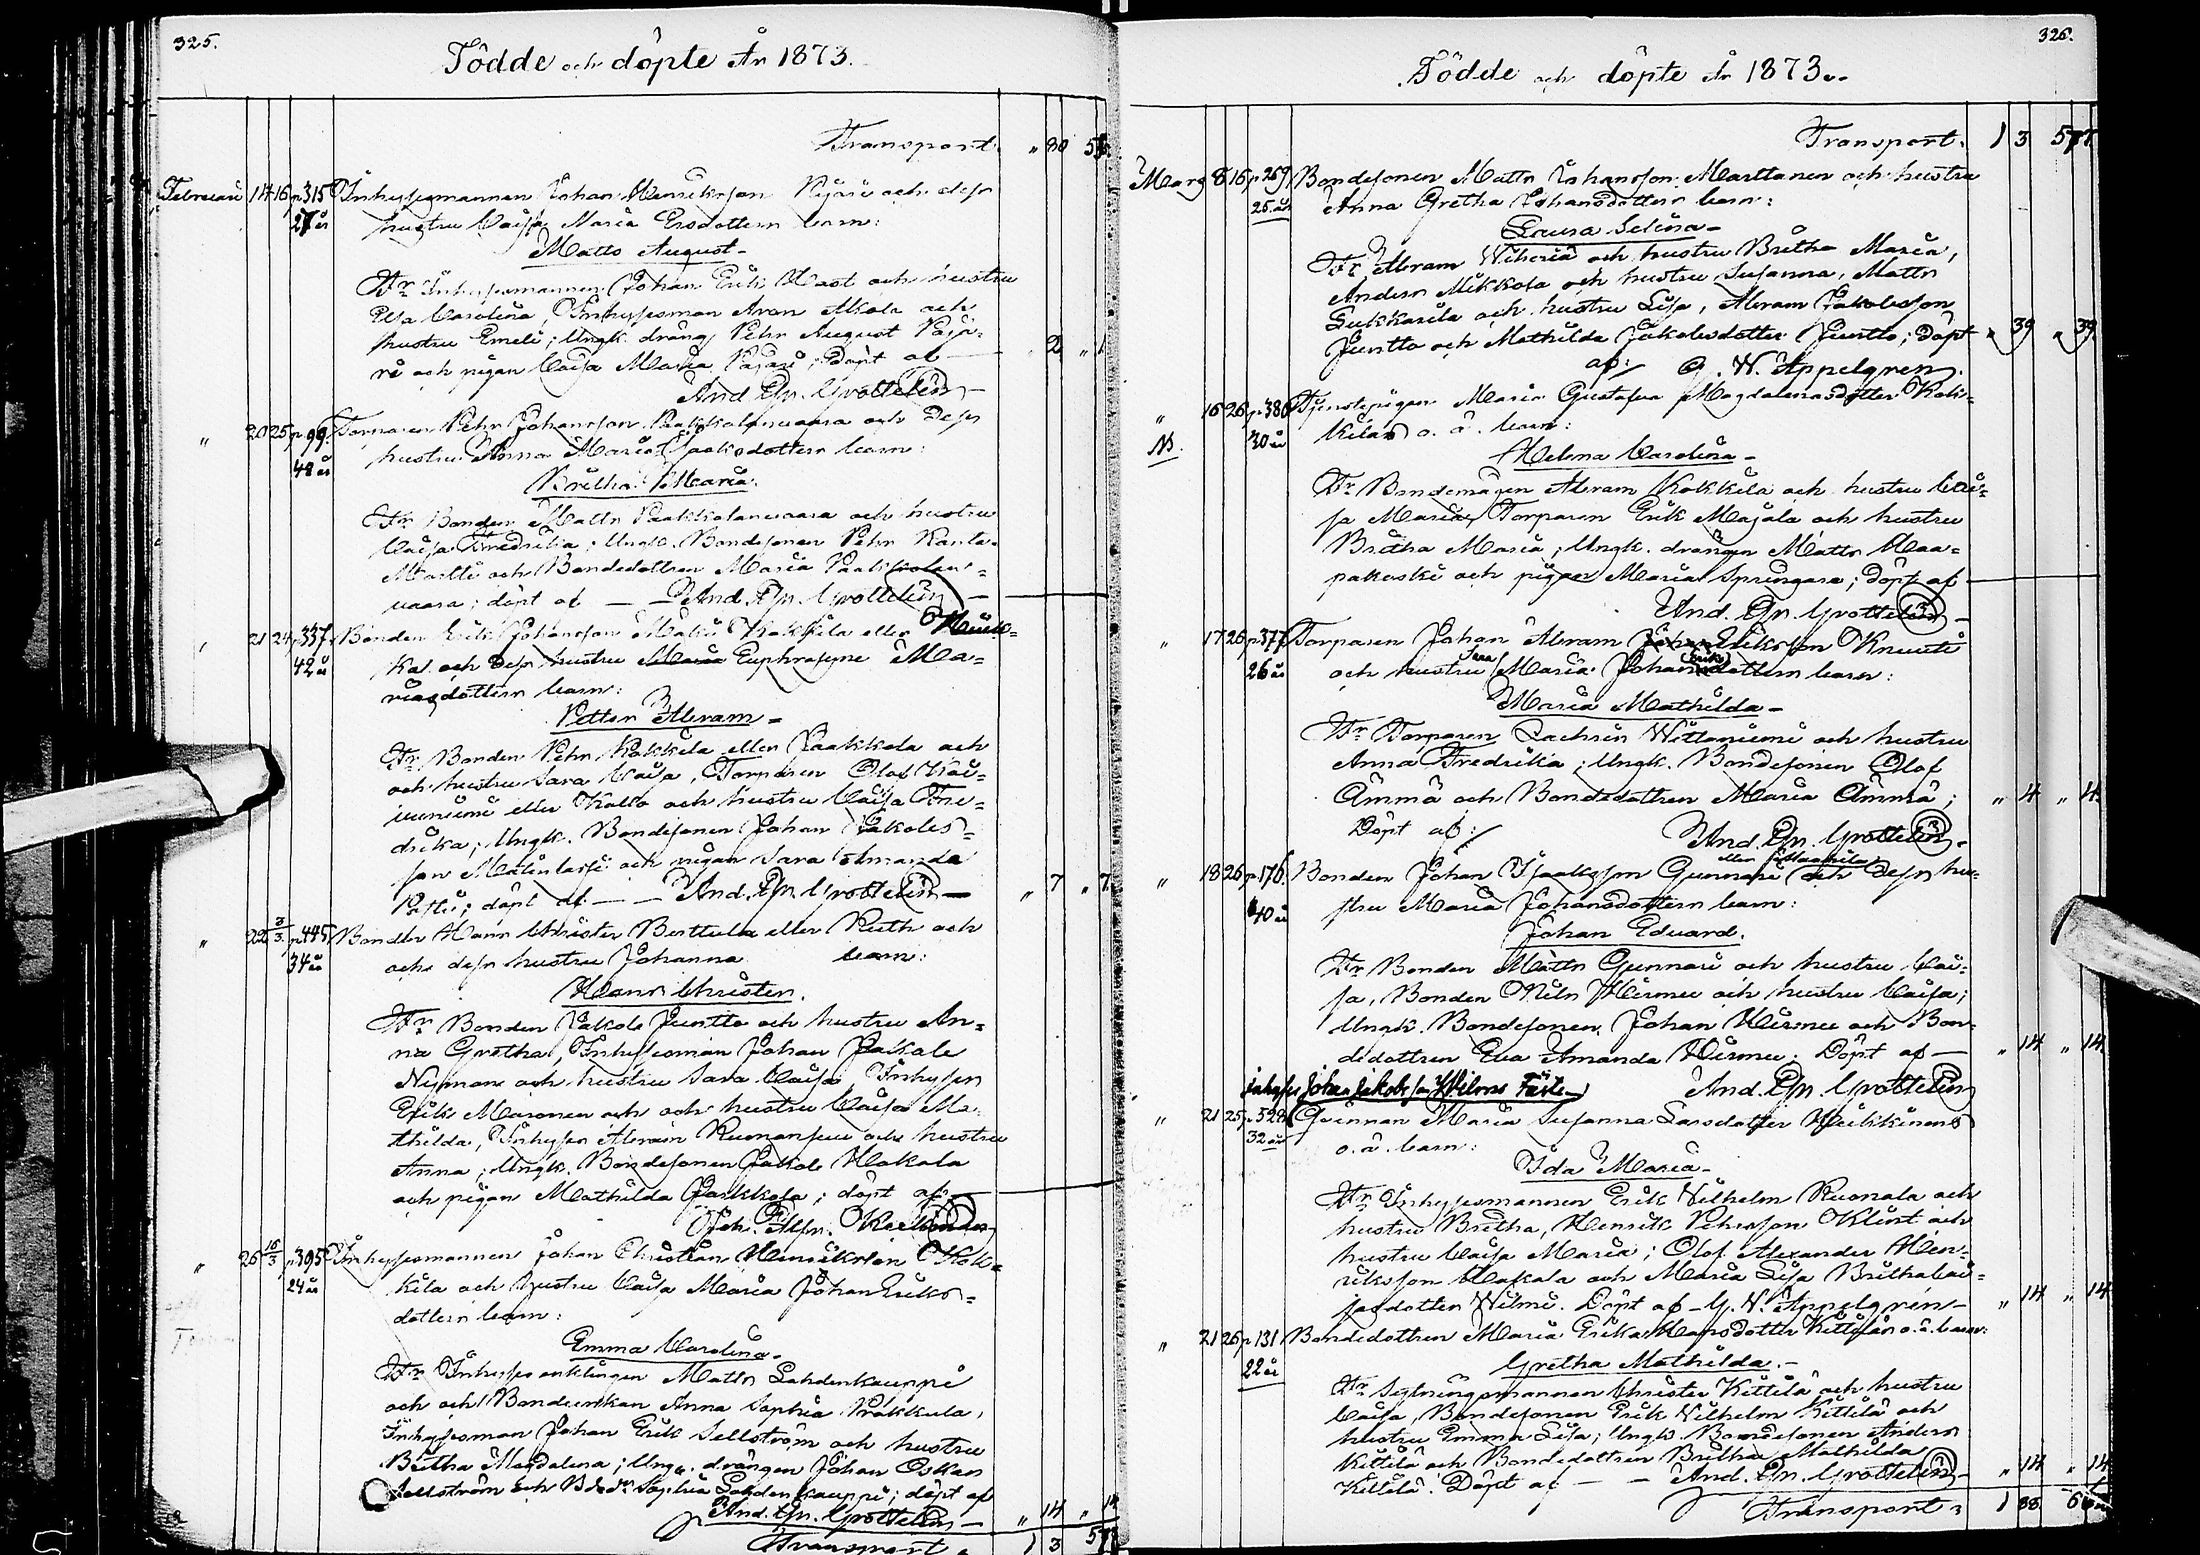 325.
Födde och döpte År 1873.
Transport. " 80 5
Februari 14 16 p.315 Inhysesmannen Johan Henriksson Pajari och dess
27 år hustru Caisa Maria Ersdotters barn:
Matts August-
Fr. Inhysesmannen Johan Erik Mast och hustru
Elsa Carolina, Inhysesman Aron Alkola och
hustru Emeli; Ungk. dräng Pehr August Paja-
ri och pigan Caisa Maria Pajari; döpt af " 2 " 1
And. Joh. Grottelin-
" 20 25 p.99 Torparen Pehr Johansson Paakkolanvaara och dess
48 år hustru Anna Maria Isaksdotters barn:
Britha Maria.
Fr. Bonden Matts Paakkolanvaara och hustru
Caisa Fredrika; Ungk. Bondesonen Pehr Kanta-
Martti och Bondedottren Maria Paakkolan-
vaara; döpt af — And. Joh. Grottelin —
" 21 24 p.337 Bonden Erik Johansson Kakkila eller
42 år ka och dess hustru Euphrosyne Ma-
riasdotters barn:
Petter Abram-
Fr. Bonden Pehr Kakkila eller Jaakkola och
och hustru Sara Caisa, Torparen Olof
eller Kallo och hustru Caisa Fre-
drika; Ungk. Bondesonen Johan Jakobs-
son och pigan Sara Amanda
döpt af — And. Joh. Grottelin — " 7 " 7
" 22 3/3 p.445 Bonden Hans Christer Berttula eller Ruth och
34 år och dess hustru Johanna barn:
Hans Christer.
Fr. Bonden Jakob Juntto och hustru An-
na Gretha, Inhysesman Johan Jaikale
Nyman och hustru Sara Caisa, Inhyses
Erik Maronen och och hustru Caisa Ma-
thilda, Inhyses Abram och hustru
Anna; Ungk. Bondesonen Jakob Hakala
och pigan Mathilda Jaakkola; döpt af
Joh.
" 26 16/3 p.395 Inhysesmannen Johan Christian Henriksson Kok-
24 år kila och hustru Caisa Maria Johan Eriks-
dotters barn:
Emma Carolina-
Fr. Inhysesenklingen Matts Lahdenkauppi
och och Bondeenkan Anna Sophia Prakkula,
Inhysesman Johan Erik Sellström och hustru
Britha Magdalena; Ungk. drängen Johan Oskar
Sellström och Bdedr Sophia Lahdenkauppi; döpt af
And. Joh. Grottelin — " 14 " 14
Transport. 1 3
326.
Födde och döpte År 1873.
Transport. 1 3 577
Mars 8 16 p.269 Bondesonen Matts Johansson Marttanen och hustru
25 år Anna Gretha Johansdotters barn:
Laura Selina-
Fr. Abram och hustru Britha Maria,
Anders Mikkola och hustru Susanna, Matts
Sukkarila och hustru Lisa, Abram Jakobsson
Juntto och Mathilda Jakobsdotter Juntto; Döpt " 39 " 39
af: G. W. Appelgren.
" 16 26 p.386 Tjenstepigan Maria Gustafva Magdalenasdotter Kak-
30 år kilas o. ä. barn:
Helena Carolina-
Fr. Bondemågen Abram Kokkila och hustru Cai-
sa Maria, Torparen Erik Majala och hustru
Britha Maria; Ungk. drängen Matts Haa-
pakoski och pigan Maria Springare; Döpt af
And. Joh. Grottelin -
" 17 26 p.377 Torparen Johan Abram Eriksson Knuuti
26 år och hustru Sara Maria Johan Eriksdotters barn:
Maria Mathilda-
Fr. Torparen Zachris Wittaniemi och hustru
Anna Fredrika; Ungk. Bondesonen Olof
Ämmä och Bondedottren Maria Ämmä; " 4 " 4
Döpt af: And. Joh. Grottelin -
" 18 26 p.176 Bonden Johan Isaaksson Gunnari och dess hu-
40 år stru Maria Johansdotters barn:
Johan Eduard.
Fr. Bonden Matts Gunnari och hustru Cai-
sa, Bonden Nils Hirmu och hustru Caisa;
Ungk. Bondesonen Johan Hirmu och Bon-
dedottren Eva Amanda Hirmu. Döpt af — " 14 " 14
And. Joh. Grottelin
inhyses Johan Jakobsson Wilmis Fäste
" 21 25 p.528 Qvinnan Maria Susanna Larsdotter Heikkinens
32 år o. ä. barn:
Ida Maria-
Fr. Inhysesmannen Erik Wilhelm Ruonala och
hustru Britha, Henrik Pehrsson Klint och
hustru Caisa Maria; Olof Alexander Hen-
riksson Hakala och Maria Lisa Brithacai-
sasdotter Wilmi. Döpt af G. W. Appelgren- " 14 " 14
" 21 26 p.131 Bondedottren Maria Erika Matsdotter Kittiläs o. ä. barn:
22 år Gretha Mathilda.-
Fr. Sytningsmannen Christer Kittilä och hustru
Caisa, Bondesonen Erik Wilhelm Kittilä och
hustru Emma Lisa; Ungk. Bondesonen Anders
Kittilä och Bondedottren Britha Mathilda
Kittilä. Döpt af — And. Joh. Grottelin — " 14 " 14
Transport. 1 88